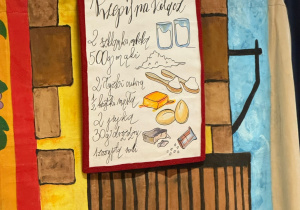 Przepis na kołacz
2 szklanki mleka
500g mąki
2 łyżki cukru
1 kostka masła
2 jajka
30g drożdży
szczypta soli